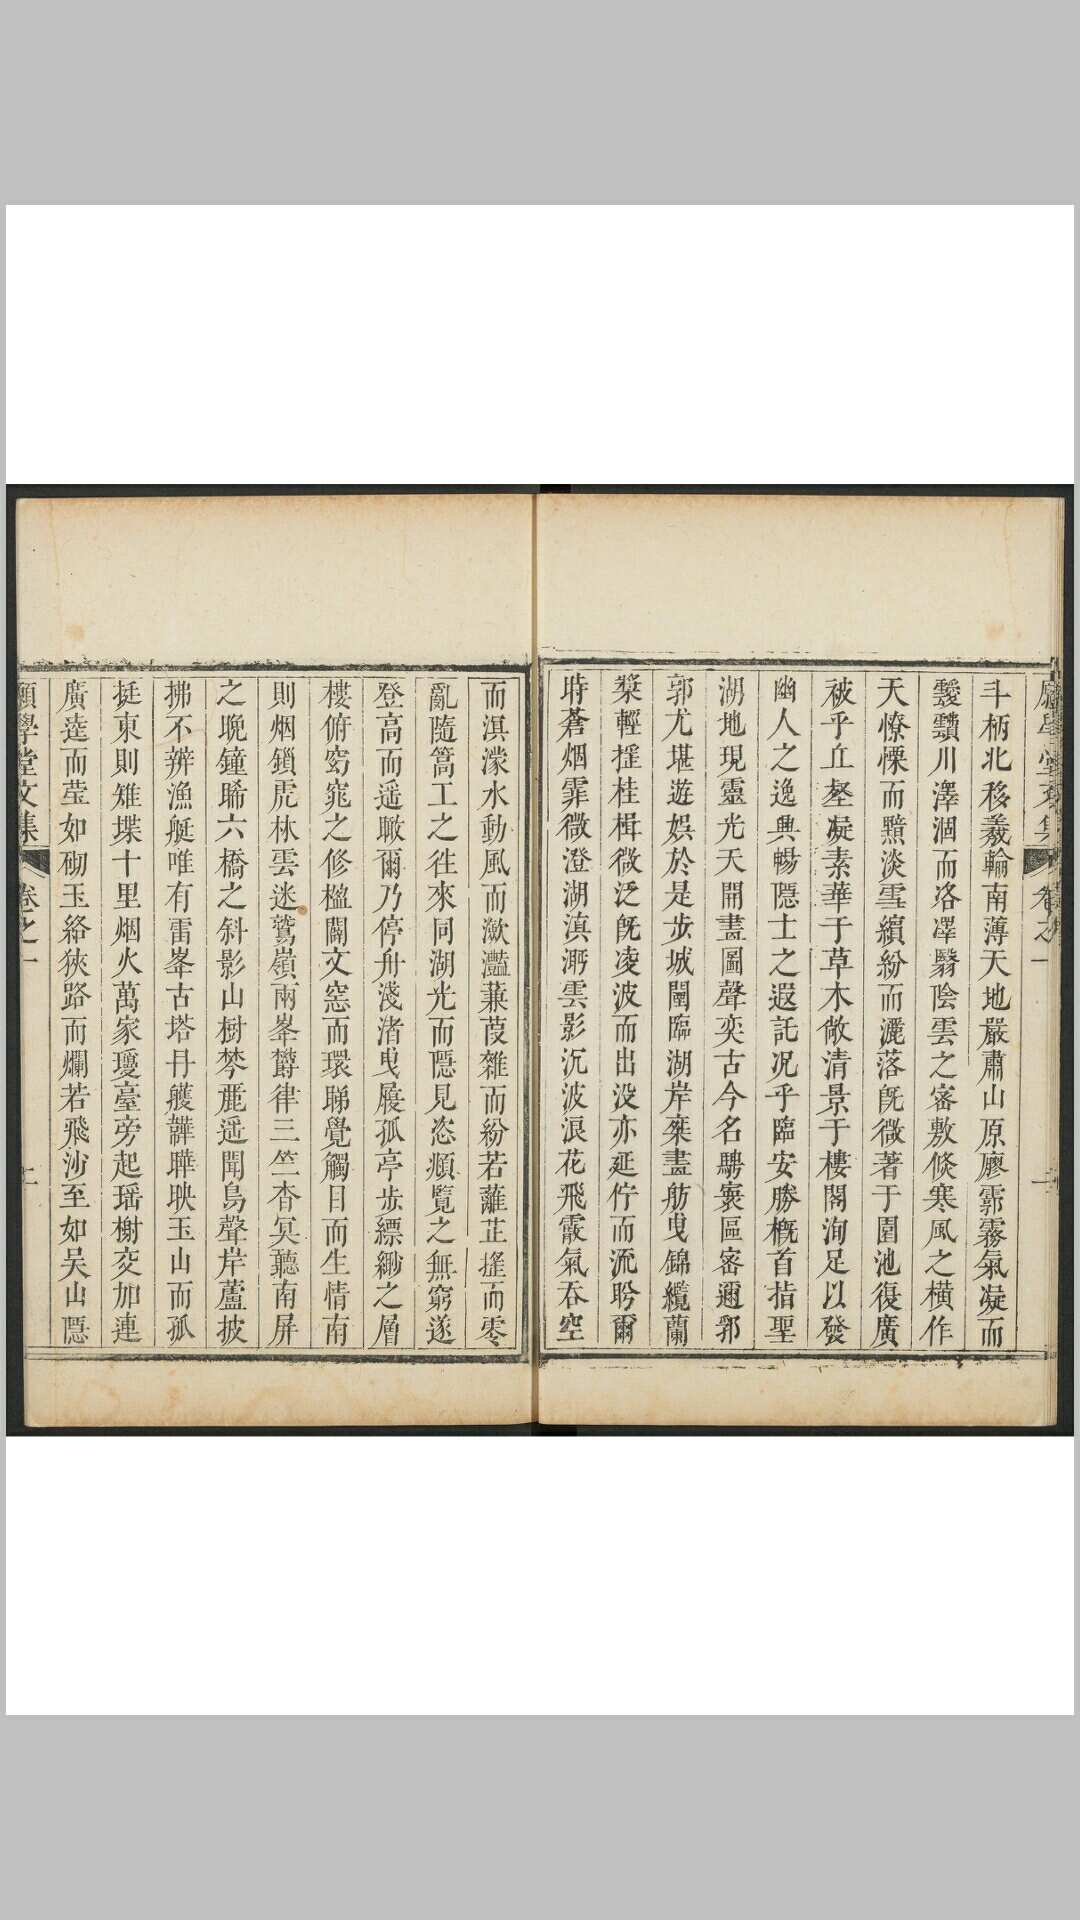 願學堂文集 卷之一 二
斗柄北移羲輪南薄天地嚴肅山原廖霩霧氣凝而
靉靆川澤涸而洛澤翳陰雲之密敷倏寒風之橫作
天憭慄而黯淡雪繽紛而灑落旣微著于園池復廣
被乎丘壑凝素華于草木敞清景于樓閣洵足以發
幽人之逸興暢隱士之遐託况乎臨安勝槪首指聖
湖地現靈光天開畫圖聲奕古今名騁寰區密邇郛
郭尤堪遊娛於是步城闉臨湖岸棄畫舫曳錦纜蘭
槳輕搖桂楫微泛旣凌波而出没亦延佇而流盻爾
時蒼烟霏微澄湖滇淜雲影沉波浪花飛霰氣吞空
而溟濛水動風而瀲灩蒹葭雜而紛若蘺芷搖而零
亂隨篙工之往來同湖光而隱見恣頫覽之無窮遂
登高而遥瞰爾乃停舟淺渚曳屐孤亭步縹緲之層
樓俯窈窕之修楹闢文窓而環睇覺觸目而生情南
則烟鎖虎林雲迷鷲嶺兩峯欎律三竺杳冥聽南屏
之晩鐘睎六橋之斜影山樹棽麗遥聞鳥聲岸蘆披
拂不辨漁艇唯有雷峯古塔丹雘韡曄映玉山而孤
挺東則雉堞十里烟火萬家瓊臺旁起瑶榭交加連
廣逵而莹如砌玉絡狹路而爛若飛沙至如吴山隱
願學堂文集 卷之一